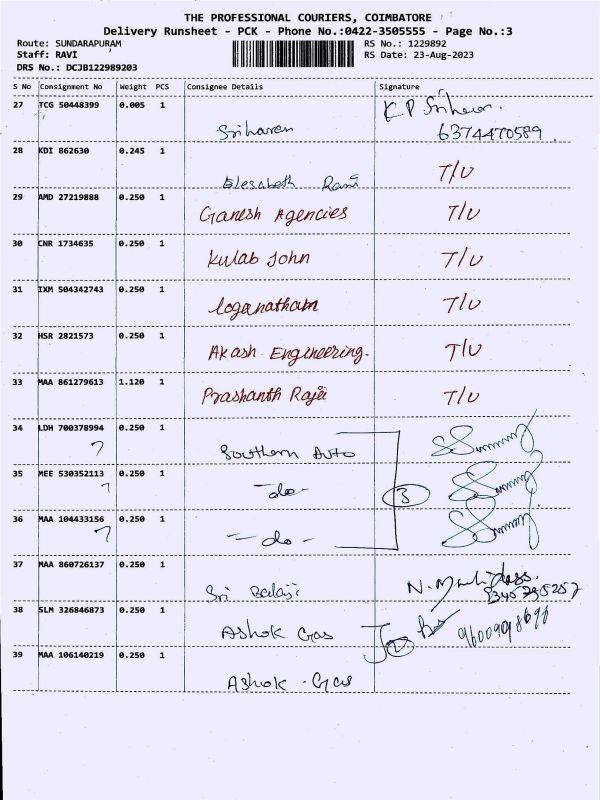 THE PROFESSIONAL COURIERS, COIMBATORE
Delivery Runsheet - PCK - Phone No.:0422-3505555 - Page No.:3
Route: SUNDARAPURAM RS No.: 1229892
Staff: RAVI RS Date: 23-Aug-2023
DRS No.: DCJB122989203
S No Consignment No Weight PCS Consignee Details Signature
27 TCG 50448399 0.005 1 Sriharan K P
6374470589
28 KDI 862630 0.245 1 Elesabeth Rani T/U
29 AMD 27219888 0.250 1 Ganesh Agencies T/U
30 CNR 1734635 0.250 1 Kulab John T/U
31 IXM 504342743 0.250 1 Loganatham T/U
32 HSR 2821573 0.250 1 Akash Engineering. T/U
33 MAA 861279613 1.120 1 Prashanth Raja T/U
34 LDH 700378994 0.250 1 Southern Auto
35 MEE 530352113 0.250 1 -do- 3
36 MAA 104433156 0.250 1 -do-
37 MAA 860726137 0.250 1 Sri Balaji N.
38 SLM 326846873 0.250 1 Ashok Gas
39 MAA 106140219 0.250 1 Ashok Gas